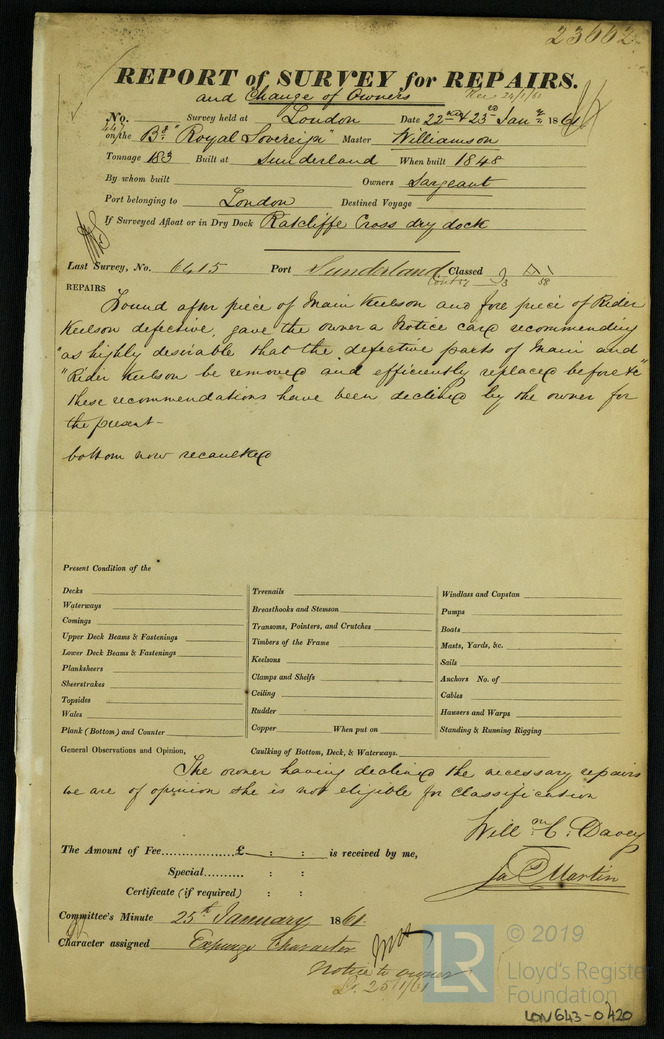 23662
REPORT of SURVEY for REPAIRS.
and Change of Owners Rec 24/1/61
No. Survey held at London Date 22nd & 23rd Jany 1861
on the Bg. "Royal Sovereign" Master Williamson
Tonnage 183 Built at Sunderland When built 1848
By whom built Owners Sargeant
Port belonging to London Destined Voyage
If Surveyed Afloat or in Dry Dock Ratcliffe Cross dry dock
Last Survey, No. 6415 Port Sunderland Classed
Contg 3 58
REPAIRS
Found after piece of Main Keelson and fore piece of Rider
Keelson defective, gave the owner a Notice card recommending
"as highly desirable that the defective parts of Main and
"Rider Keelson be removed and efficiently replaced before &c"
these recommendations have been declined by the owner for
the present -
bottom now recaulked
Present Condition of the
Decks
Waterways
Comings
Upper Deck Beams & Fastenings
Lower Deck Beams & Fastenings
Planksheers
Sheerstrakes
Topsides
Wales
Plank (Bottom) and Counter
Treenails
Breasthooks and Stemson
Transoms, Pointers, and Crutches
Timbers of the Frame
Keelsons
Clamps and Shelfs
Ceiling
Rudder
Copper When put on
Windlass and Capstan
Pumps
Boats
Masts, Yards, &c.
Sails
Anchors No. of
Cables
Hawsers and Warps
Standing & Running Rigging
General Observations and Opinion, Caulking of Bottom, Deck, & Waterways.
The owner having declined the necessary repairs
we are of opinion she is not eligible for classification
Willm C. Davey
The Amount of Fee................£ : : is received by me,
Jas Martin
Special.......... : :
Certificate (if required) : :
Committee's Minute 25th January 1861
Character assigned Expunge Character
Notice to owner
Lr. 25/1/61
© 2019
LR
Lloyd's Register
Foundation
LON643-0420